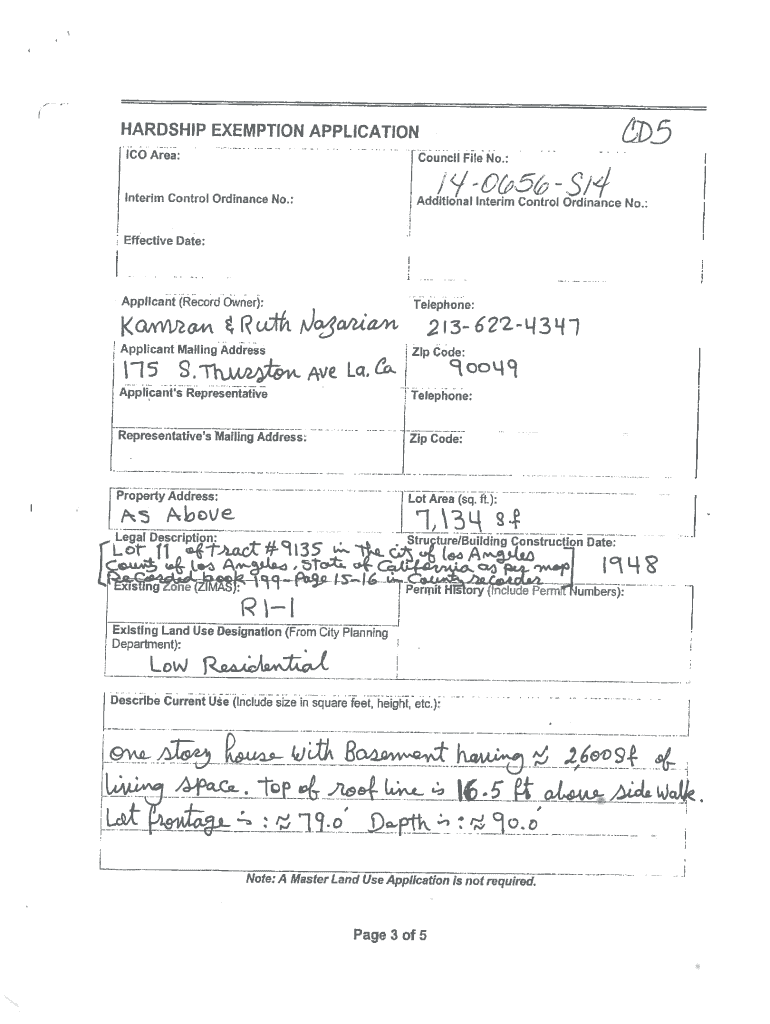 HARDSHIP EXEMPTION APPLICATION CD5
ICO Area: Council File No.:
14-0656-S14
Interim Control Ordinance No.: Additional Interim Control Ordinance No.:
Effective Date:
Applicant (Record Owner): Telephone:
Kamran & Ruth Nazarian 213-622-4347
Applicant Mailing Address Zip Code:
175 S. Thurston Ave La. Ca 90049
Applicant's Representative Telephone:
Representative's Mailing Address: Zip Code:
Property Address: Lot Area (sq. ft.):
As Above 7,134 sf
Legal Description: Structure/Building Construction Date:
Lot 11 of tract #9135 in the city of los Angeles
County of los Angeles, State of California as per map 1948
Recorded book 199-Page 15-16 in County recorder
Existing Zone (ZIMAS): Permit History (Include Permit Numbers):
R1-1
Existing Land Use Designation (From City Planning
Department):
Low Residential
Describe Current Use (Include size in square feet, height, etc.):
one story house with Basement having ≈ 2,600 Sf of
living space. top of roof line is 16.5 ft above side walk.
Lot frontage is : ≈ 79.0' Depth is : ≈ 90.0'
Note: A Master Land Use Application is not required.
Page 3 of 5